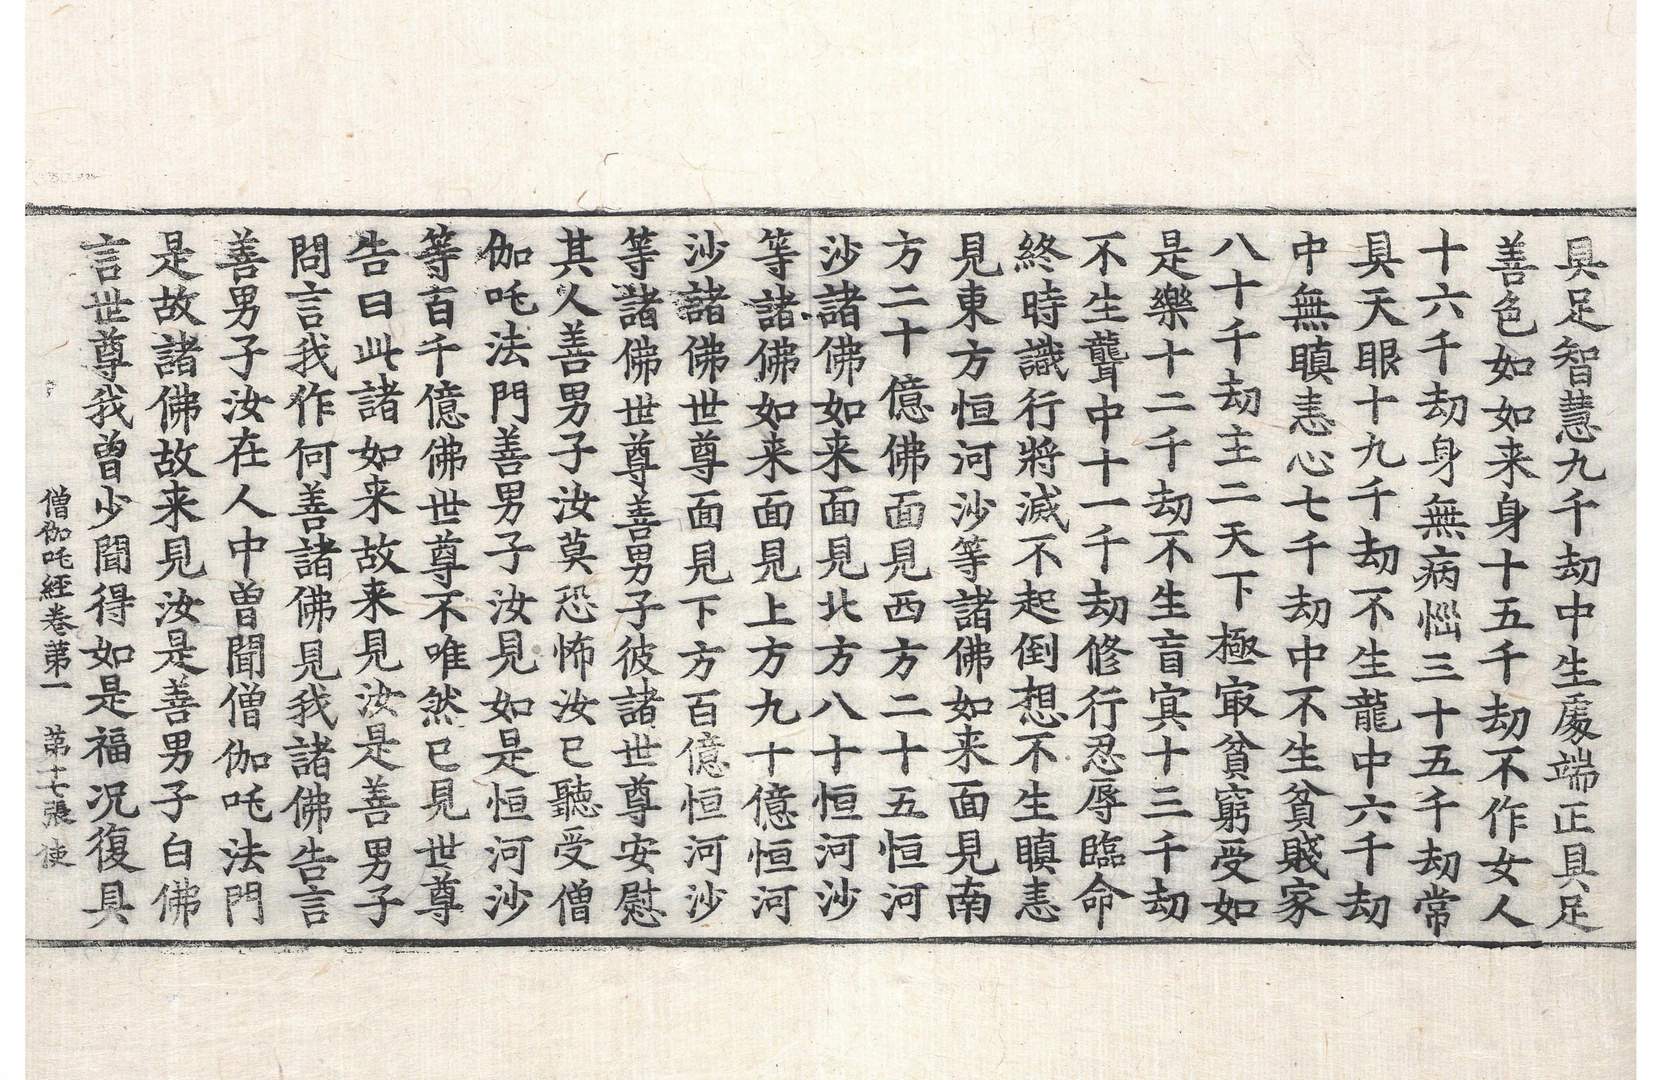 具足智慧九千劫中生處端正具足
善色如如来身十五千劫不作女人
十六千劫身無病惱三十五千劫常
具天眼十九千劫不生龍中六千劫
中無瞋恚心七千劫中不生貧賤家
八十千劫主二天下極冣貧窮受如
是樂十二千劫不生盲冥十三千劫
不生聾中十一千劫修行忍辱臨命
終時識行將滅不起倒想不生瞋恚
見東方恒河沙等諸佛如来面見南
方二十億佛面見西方二十五恒河
沙諸佛如来面見北方八十恒河沙
等諸佛如来面見上方九十億恒河
沙諸佛世尊面見下方百億恒河沙
等諸佛世尊善男子彼諸世尊安慰
其人善男子汝莫恐怖汝已聽受僧
伽吒法門善男子汝見如是恒河沙
等百千億佛世尊不唯然已見世尊
告曰此諸如来故来見汝是善男子
問言我作何善諸佛見我諸佛告言
善男子汝在人中曾聞僧伽吒法門
是故諸佛故来見汝是善男子白佛
言世尊我曾少聞得如是福况復具
僧伽吒經卷第一 第十七張 使